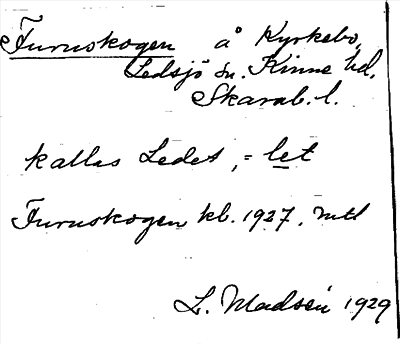 Furuskogen å Kyrkebo,
Ledsjö sn. Kinne hd.
Skarab. l.
kallas Ledet, = let
Furuskogen kb. 1927. mtl
L. Madsén 1929